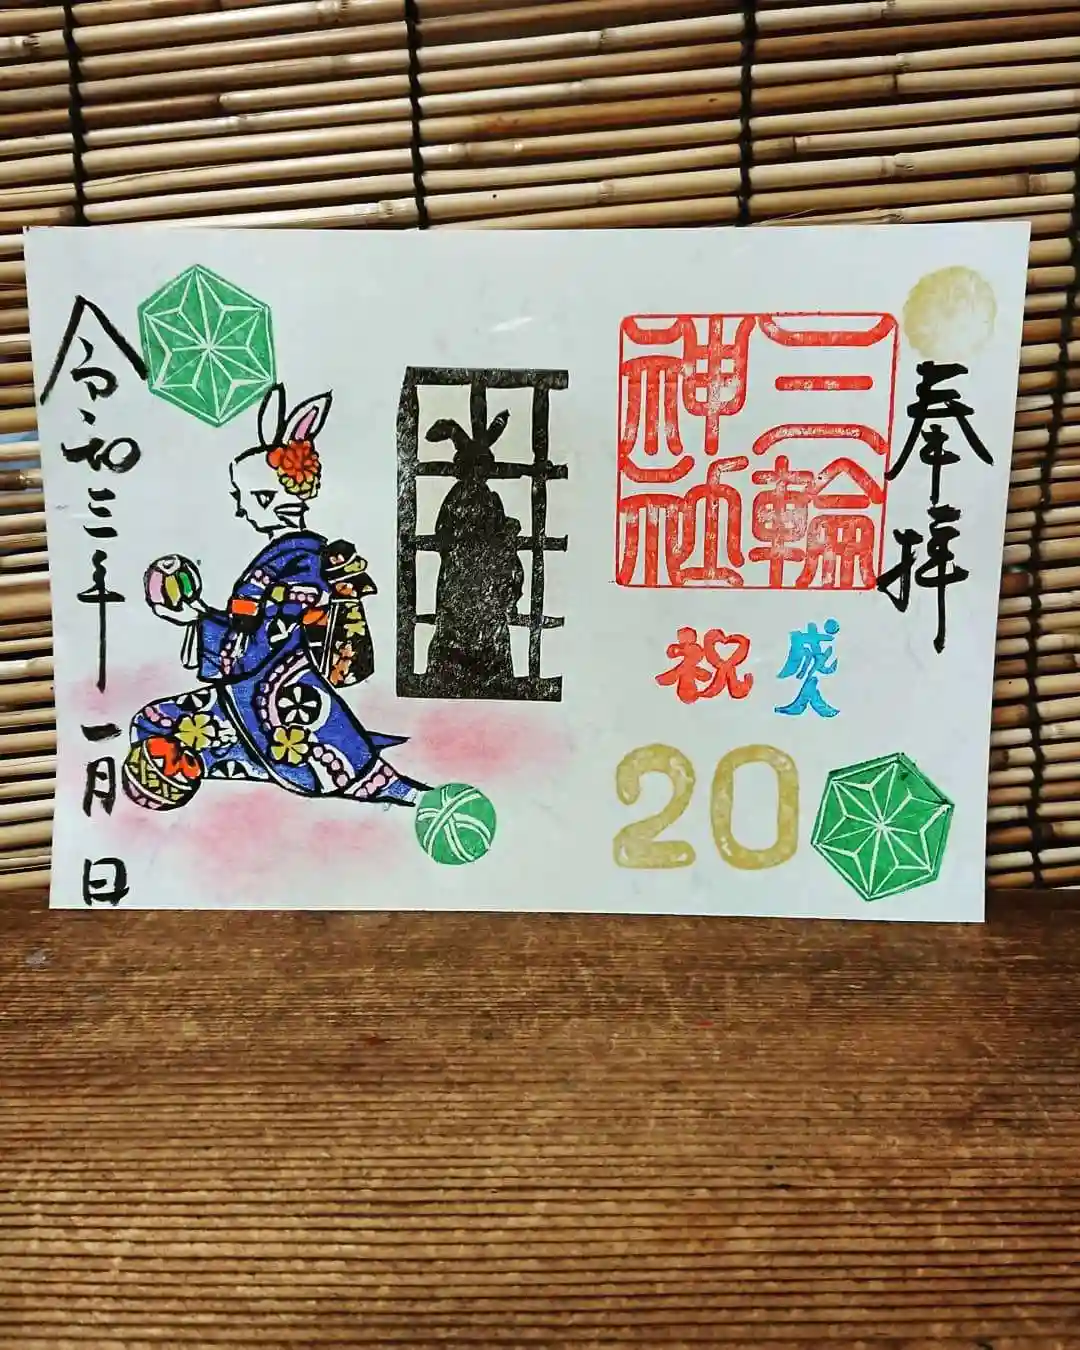 奉拝
三輪
神社
成人
祝
20
令和三年一月 日